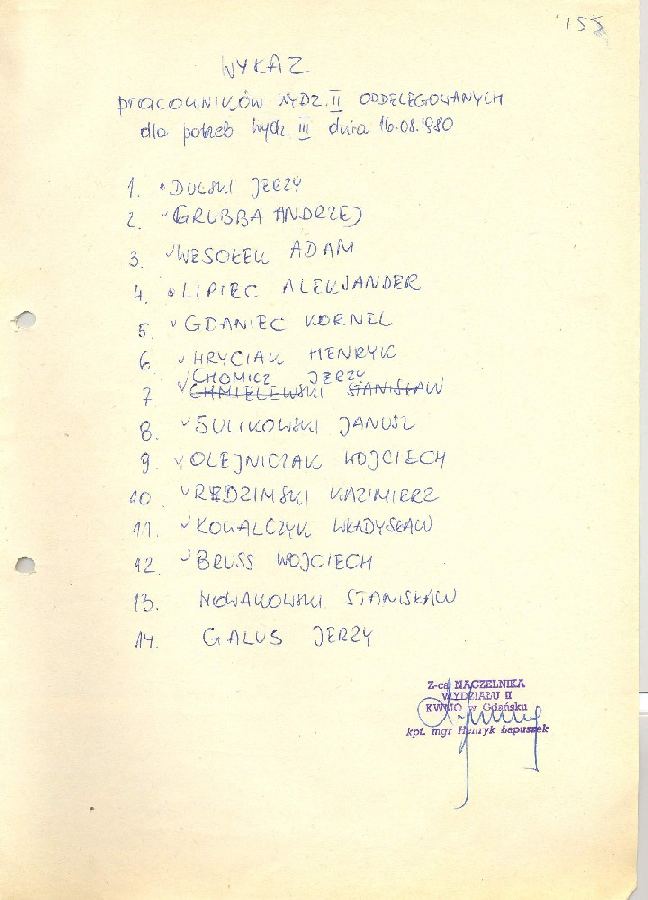 155
WYKAZ
PRACOWNIKÓW WYDZ. II ODDELEGOWANYCH
dla potrzeb Wydz. III dnia 16.08.980
1. DULSKI JERZY
2. GRUBBA ANDRZEJ
3. WESOŁEK ADAM
4. LIPIEC ALEKSANDER
5. GDANIEC KORNEL
6. HRYCIAK HENRYK
CHOMICZ JERZY
7. CHMIELEWSKI STANISŁAW
8. SULIKOWSKI JANUSZ
9. OLEJNICZAK WOJCIECH
10. RĘDZIMSKI KAZIMIERZ
11. KOWALCZYK WŁADYSŁAW
12. BRUSS WOJCIECH
13. NOWAKOWSKI STANISŁAW
14. GALUS JERZY
Z-ca NACZELNIKA
WYDZIAŁU II
KWMO w Gdańsku
kpt. mgr Henryk Łapuszek